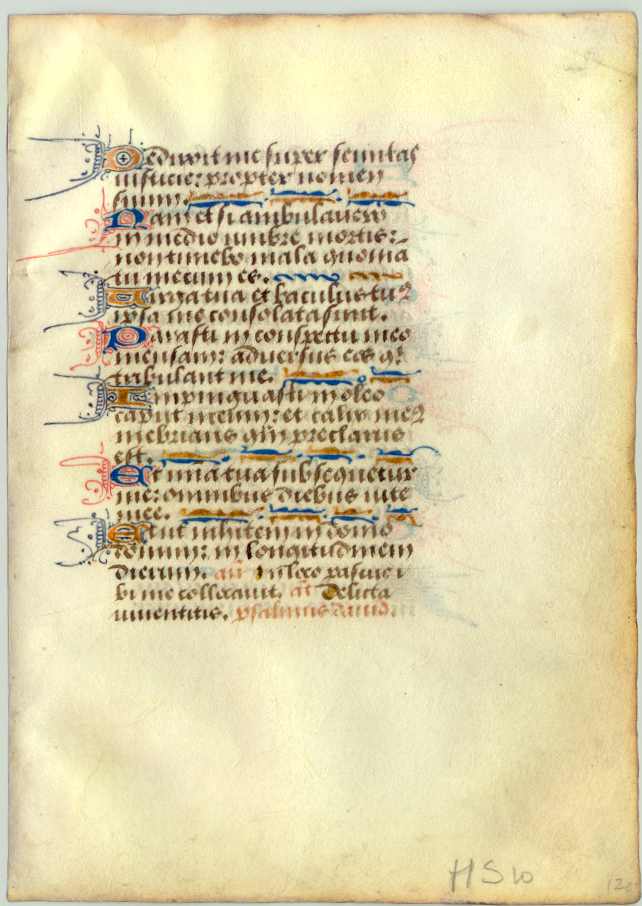 Deduxit me super semitas
iusticie: propter nomen
suum.
Nam et si ambulavero
in medio umbre mortis:
non timebo mala quonia
tu mecum es.
Virga tua et baculus tuꝰ
ipsa me consolata sunt.
Parasti in conspectu meo
mensam: adversus eos qͥ
tribulant me.
Impinguasti in oleo
caput meum: et calix meꝰ
inebrians qͣm preclarus
est.
Et mia tua subsequetur
me: omnibus diebus vite
mee.
Et ut inhitem in domo
domini: in longitudinem
dierum. añ In loco pascue i
bi me collocavit. añ Delicta
iuventutis. psalmus david.
HS 10